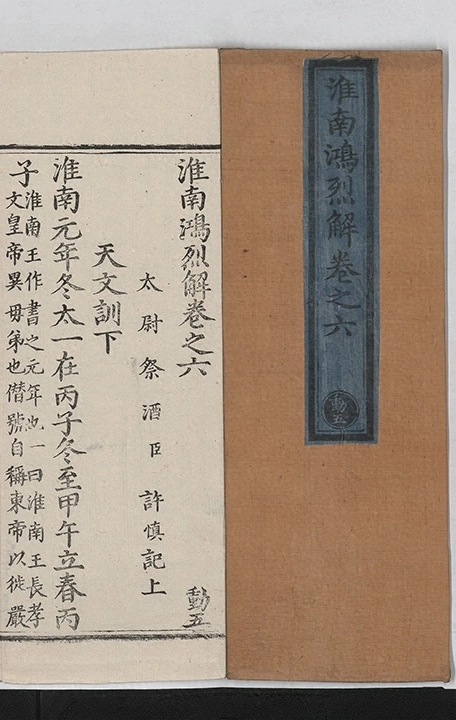 淮南鴻烈解卷之六
動五
淮南鴻烈解卷之六
動五
太尉祭酒臣許慎記上
天文訓下
淮南元年冬太一在丙子冬至甲午立春丙
子
淮南王作書之元年也一曰淮南王長孝
文皇帝異母弟也僭號自稱東帝以徙嚴